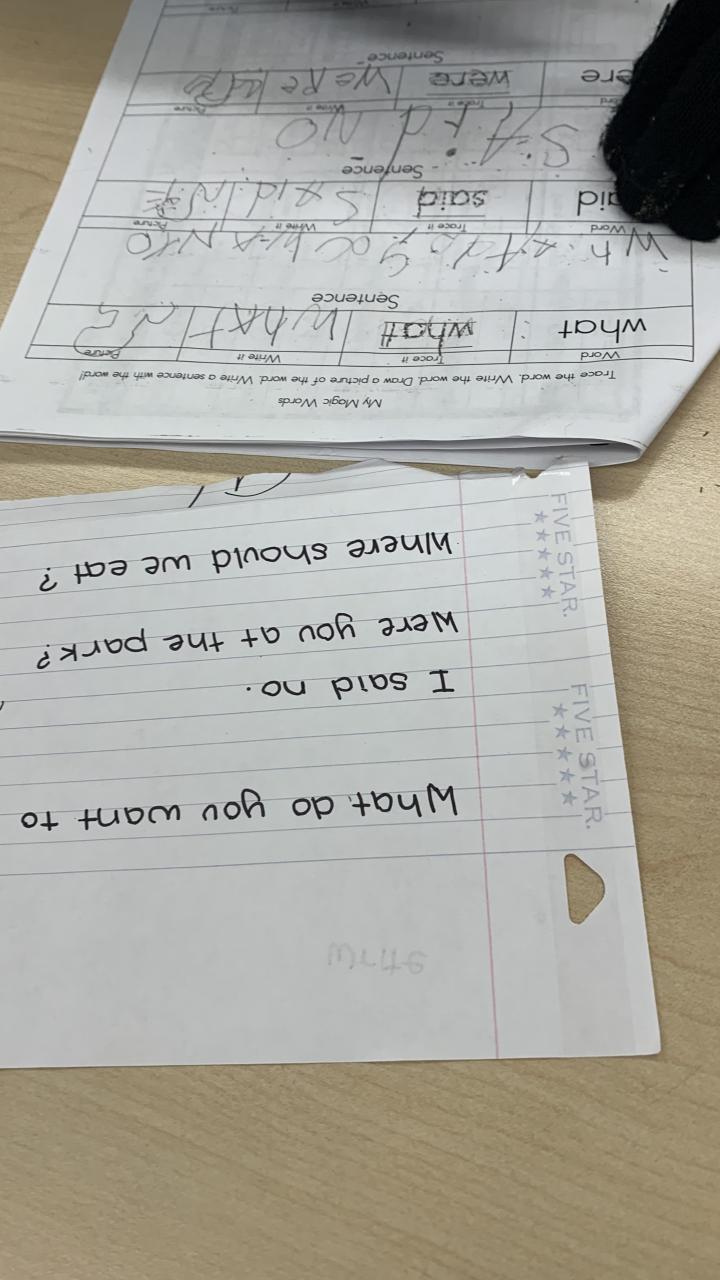 My Magic Words
Trace the word. Write the word. Draw a picture of the word. Write a sentence with the word!
Word Trace it Write it Picture
what what WhAt
Sentence
Whatdo you wANtO
Word Trace it Write it Picture
aid said SAid
Sentence
SAid NO
Word Trace it Write it Picture
ere were WeRe
Sentence
What do you want to
I said no.
Were you at the park?
Where should we eat?
FIVE STAR.
FIVE STAR.